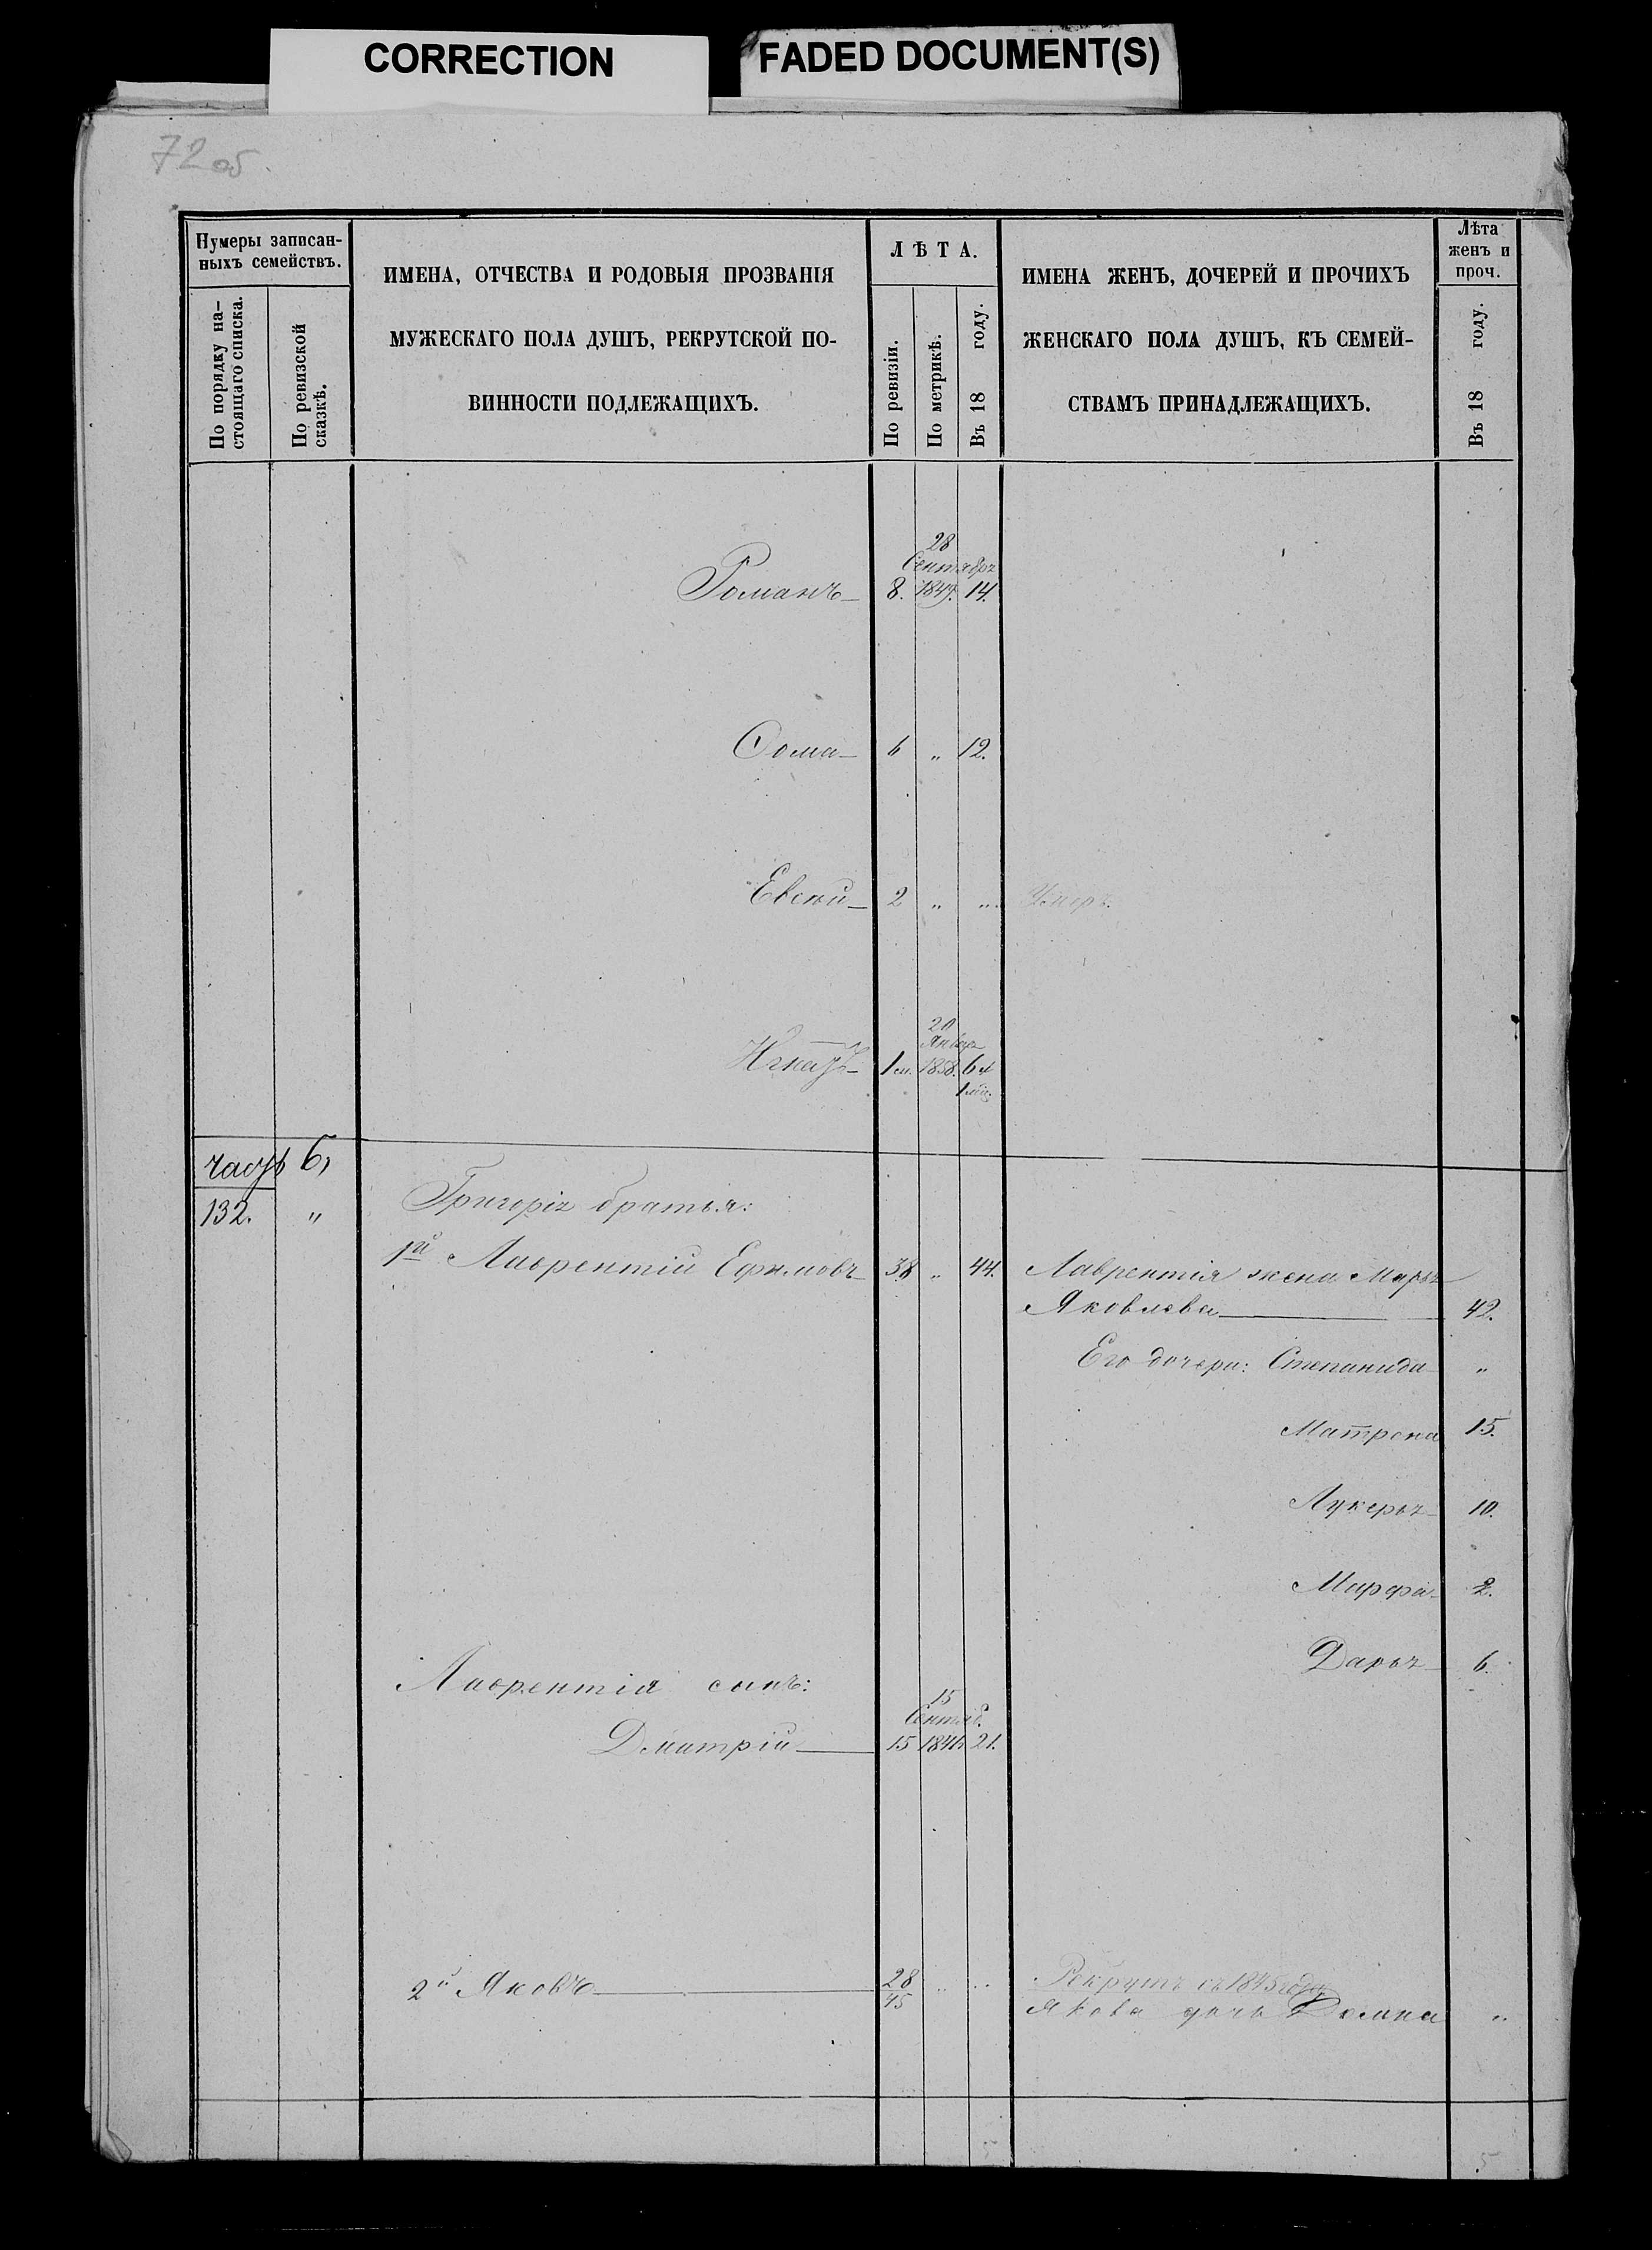 CORRECTION
FADED DOCUMENT(S)
72 об.
Нумеры записан-
ныхъ семействъ.
По порядку на-
стоящаго списка.
По ревизской
сказкѣ.
ИМЕНА, ОТЧЕСТВА И РОДОВЫЯ ПРОЗВАНІЯ
МУЖЕСКАГО ПОЛА ДУШЪ, РЕКРУТСКОЙ ПО-
ВИННОСТИ ПОДЛЕЖАЩИХЪ.
ЛѢТА.
По ревизіи.
По метрикѣ.
Въ 18 году.
ИМЕНА ЖЕНЪ, ДОЧЕРЕЙ И ПРОЧИХЪ
ЖЕНСКАГО ПОЛА ДУШЪ, КЪ СЕМЕЙ-
СТВАМЪ ПРИНАДЛЕЖАЩИХЪ.
Лѣта
женъ и
проч.
Въ 18 году.
28
Сентября
Романъ 8. 1849. 14.
Ѳома 6 " 12.
Евсѣй 2 " " Умеръ.
20
Январ
Игнатъ 1 м. 1858. 6
1 мѣс.
часть 6,
132. " Григорія братья:
1й Лаврентій Ефимовъ 38 " 44. Лаврентія жена Марья
Яковлева 42.
Его дочери: Степанида "
Матрона 15.
Лукерья 10.
Марфа 2.
Дарья 6.
Лаврентія сынъ:
15
Сентяб.
Дмитрій 15 21.
2й Яковъ 28/45 " " Рекрутъ съ 1845 года
Якова дочь Домна "
5
5